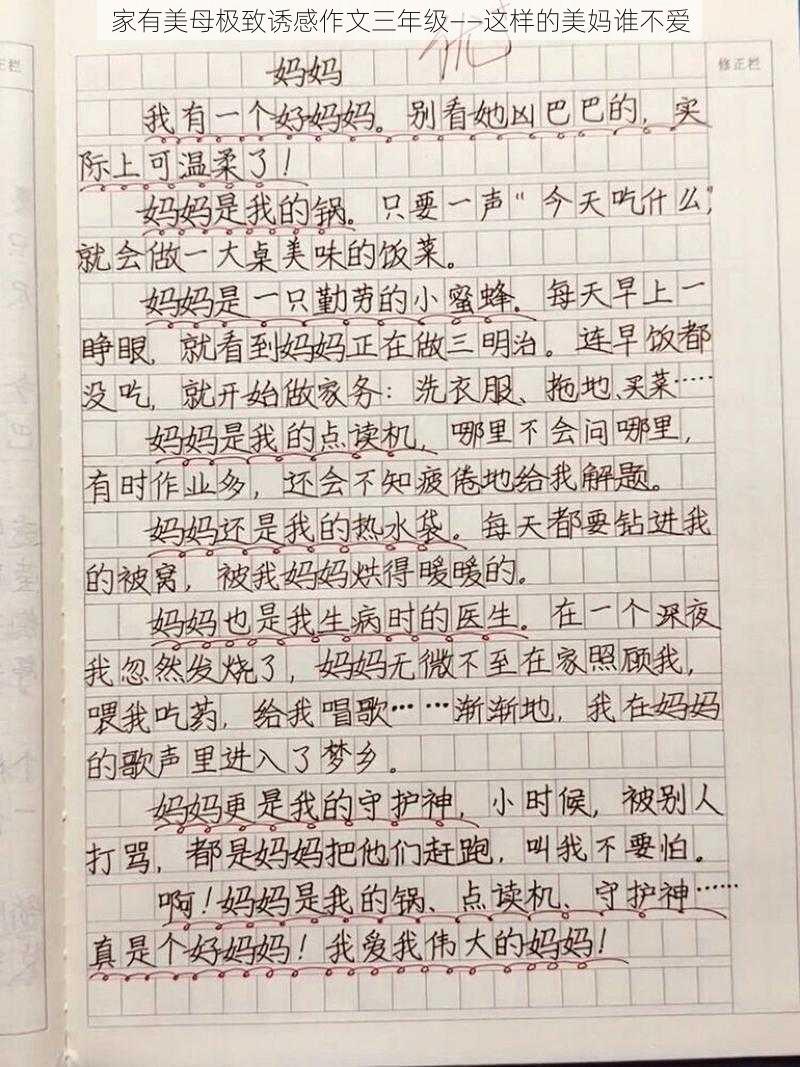 家有美母极致诱感作文三年级——这样的美妈谁不爱
优+
正栏
修正栏
妈妈
我有一个好妈妈。别看她凶巴巴的，实
际上可温柔了！
妈妈是我的锅。只要一声“今天吃什么”，
就会做一大桌美味的饭菜。
妈妈是一只勤劳的小蜜蜂。每天早上一
睁眼，就看到妈妈正在做三明治。连早饭都
没吃，就开始做家务：洗衣服、拖地、买菜……
妈妈是我的点读机，哪里不会问哪里，
有时作业多，还会不知疲倦地给我解题。
妈妈还是我的热水袋。每天都要钻进我
的被窝，被我妈妈烘得暖暖的。
妈妈也是我生病时的医生。在一个深夜
我忽然发烧了，妈妈无微不至在家照顾我，
喂我吃药，给我唱歌……渐渐地，我在妈妈
的歌声里进入了梦乡。
妈妈更是我的守护神，小时候，被别人
打骂，都是妈妈把他们赶跑，叫我不要怕。
啊！妈妈是我的锅、点读机、守护神……
真是个好妈妈！我爱我伟大的妈妈！